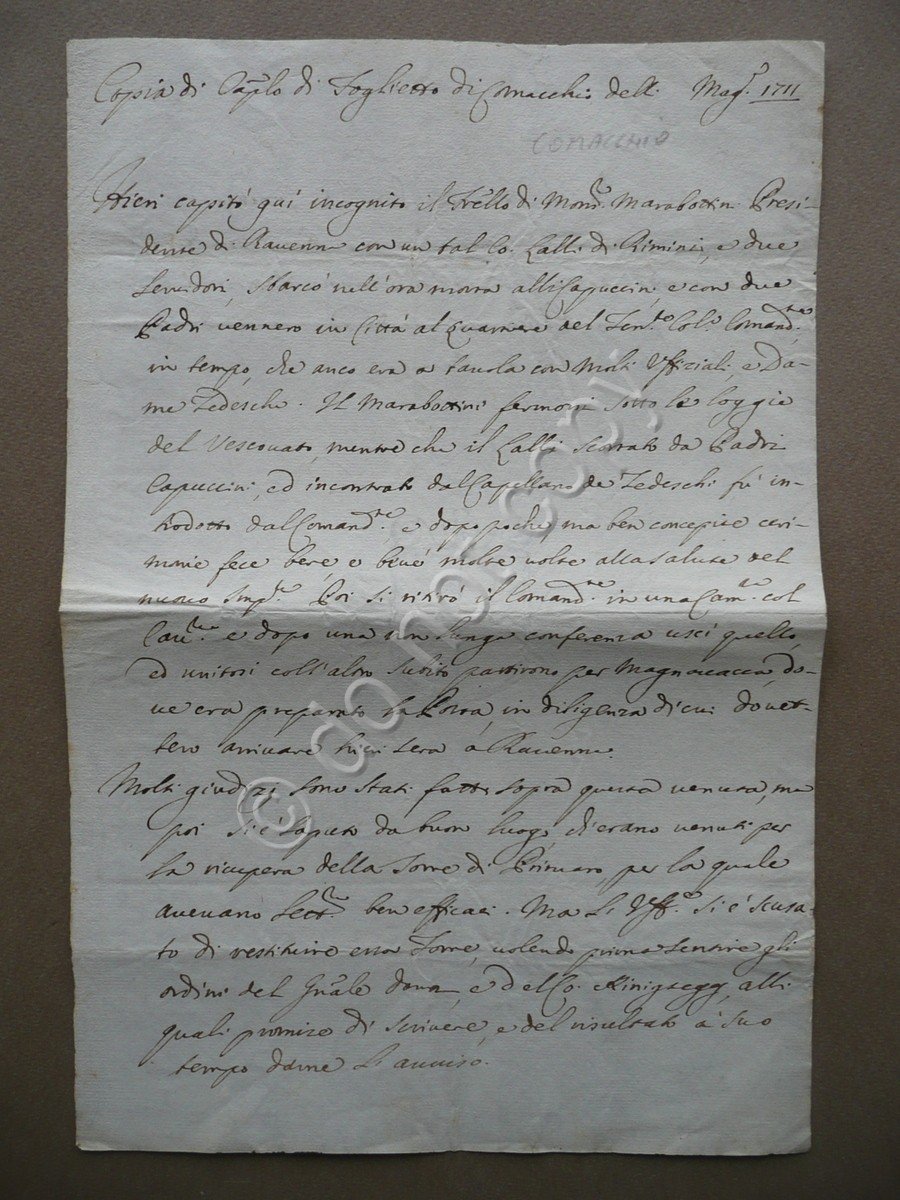 Copia di Cap̃lo di Foglietto di Comacchio dell. Magg.º 1711
COMACCHIO
Hieri capitò quì incognito il Frẽllo di Mons.r Marabottini Presi-
dente di Ravenna con un tal Co. Lalli di Rimini, e due
Servidori, sbarcò nell'ora morta alli Capuccini, e con due
Padri vennero in Città al Quartiere del Ten.te Col.o Comand.te
in tempo, che anco era a tavola con molti Ufficiali, e Da-
me Tedesche. Il Marabottini fermossi sotto le loggie
del Vescovato, mentre che il Lalli scortato da Padri
Capuccini, ed incontrato dal Capellano de Tedeschi fù in-
trodotto dal Comand.te e dopo poche, ma ben concepite ceri-
monie fece bere, e bivè molte volte alla salute del
nuovo Imp.re Poi si ritirò il Comand.te in una Cam.ra col
Cav.re e dopo una non lunga conferenza uscì quello,
ed unitosi coll'altro subito partirono per Magnavacca, do-
ve era preparato la Posta, in diligenza di cui dovet-
tero arrivare hieri sera a Ravenna.
Molti giudizi sono stati fatti sopra questa venuta, ma
poi si è saputo da buon luogo, ch'erano venuti per
la ricupera della Torre di Primaro, per la quale
avevano Lett.re ben efficaci. Ma li Uff.li si è scusa-
to di restituire essa Torre, volendo prima sentire gli
ordini del Gñale Daun, e del Co. Kinigsegg, alli
quali promise di scrivere, e del risultato à suo
tempo darne li avviso.
© do not copy